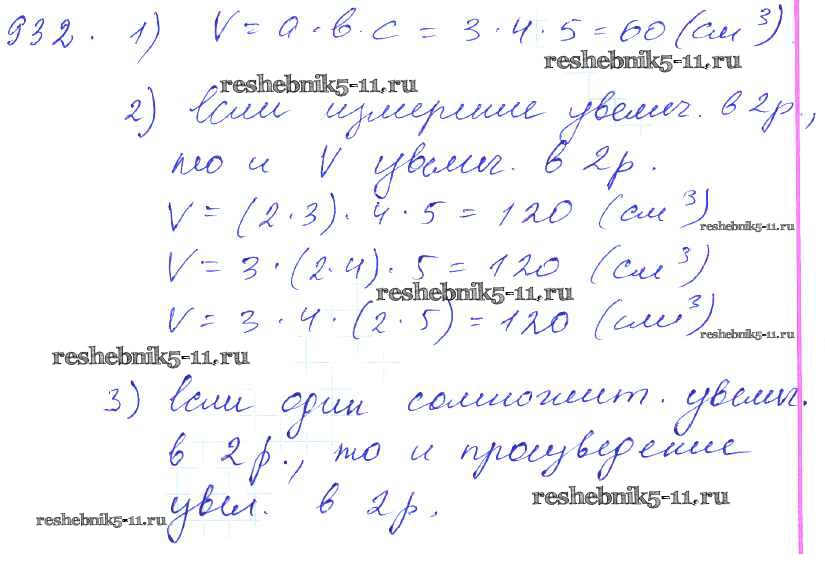 932. 1) V = a · в · c = 3 · 4 · 5 = 60 (см³)
reshebnik5-11.ru
reshebnik5-11.ru
2) Если измерение увелич. в 2 р.,
то и V увелич. в 2 р.
V = (2 · 3) · 4 · 5 = 120 (см³)
reshebnik5-11.ru
V = 3 · (2 · 4) · 5 = 120 (см³)
reshebnik5-11.ru
V = 3 · 4 · (2 · 5) = 120 (см³)
reshebnik5-11.ru
reshebnik5-11.ru
3) Если один сомножит. увелич.
в 2 р., то и произведение
reshebnik5-11.ru
увел. в 2 р.
reshebnik5-11.ru